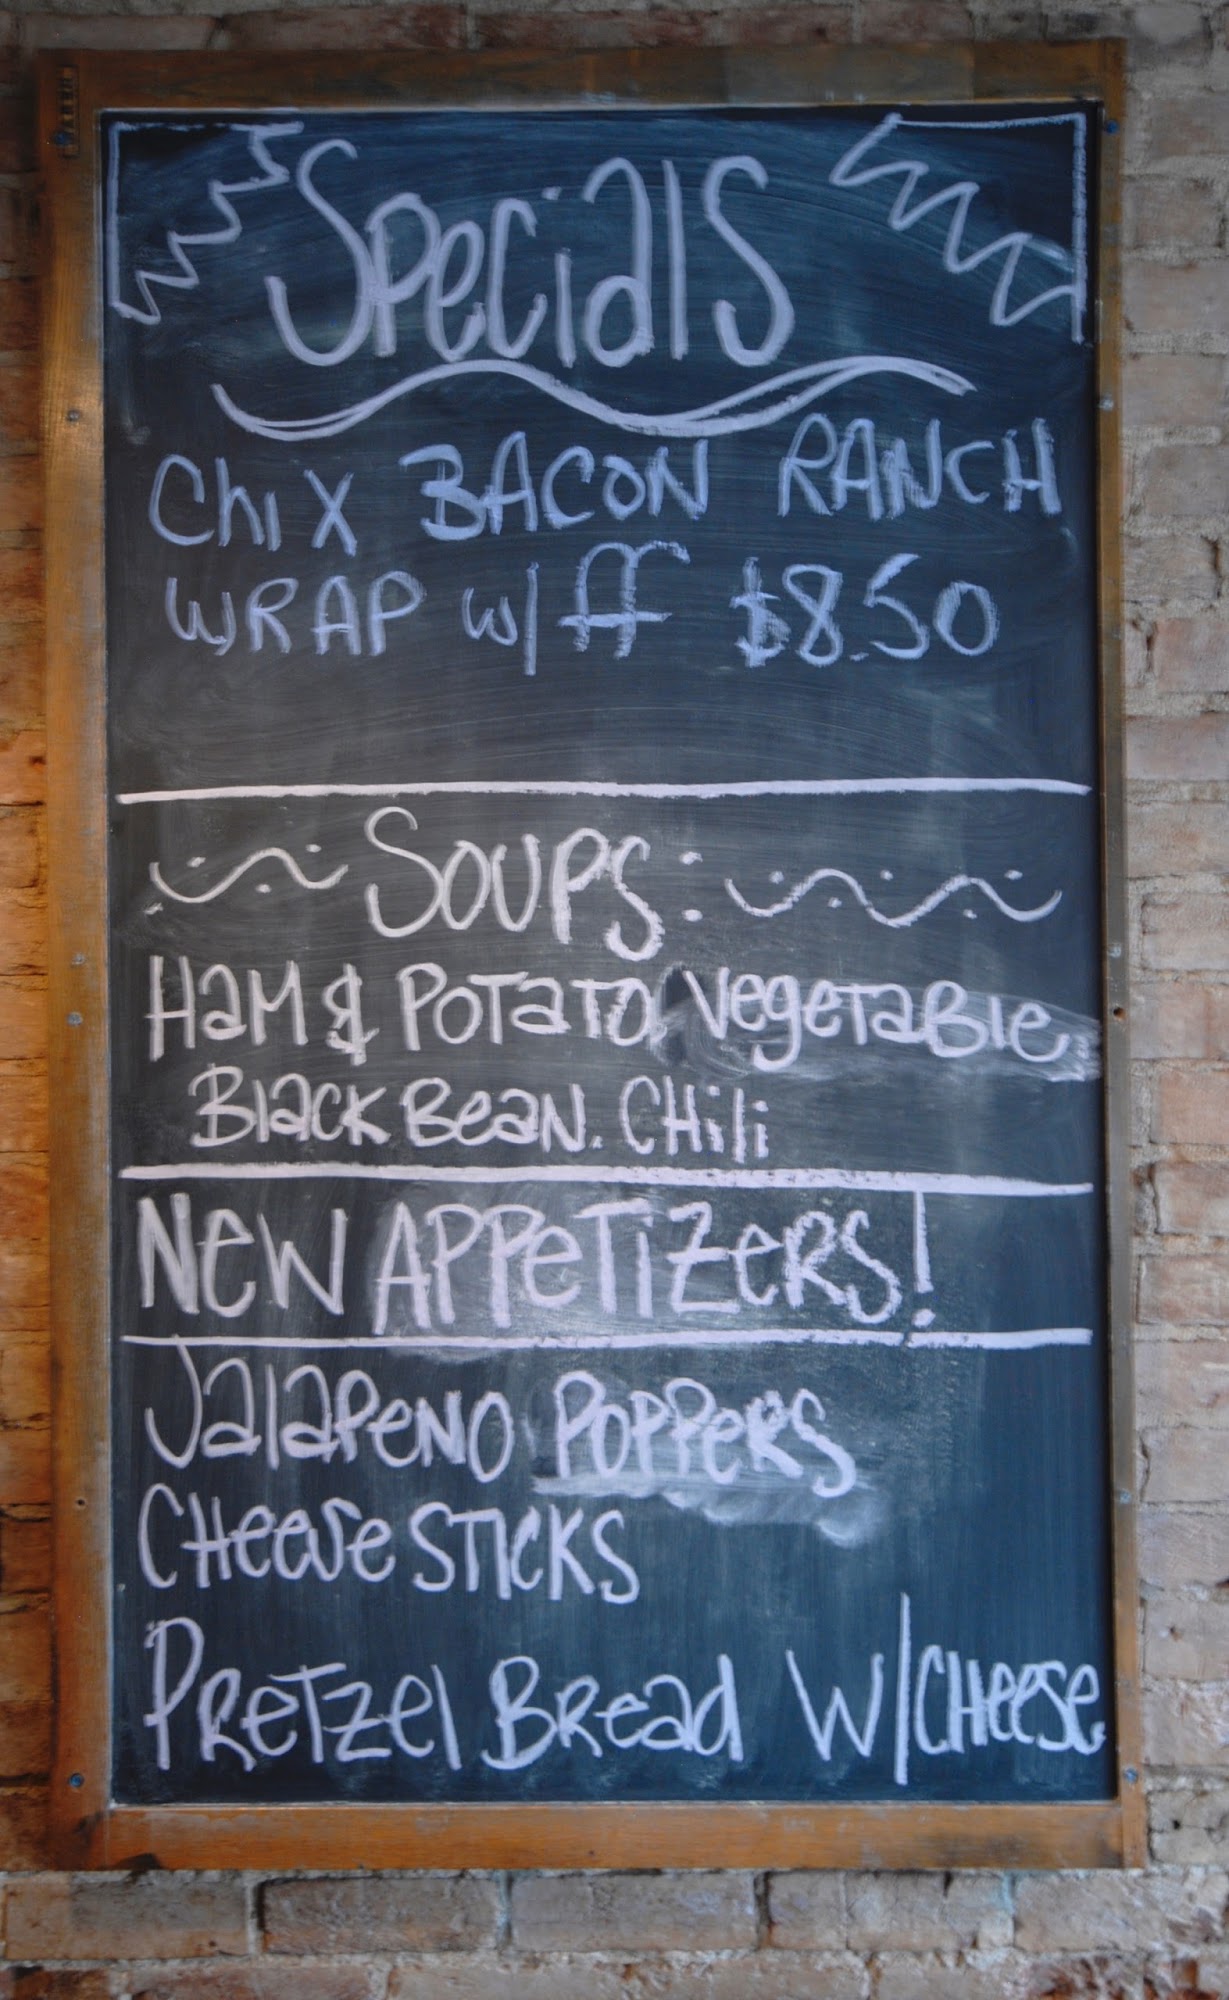 Specials
Chix BACON RANCH
WRAP w/ ff $8.50
Soups:
Ham & Potato Vegetable
Black Bean. Chili
New Appetizers!
Jalapeno Poppers
Cheese Sticks
Pretzel Bread w/cheese